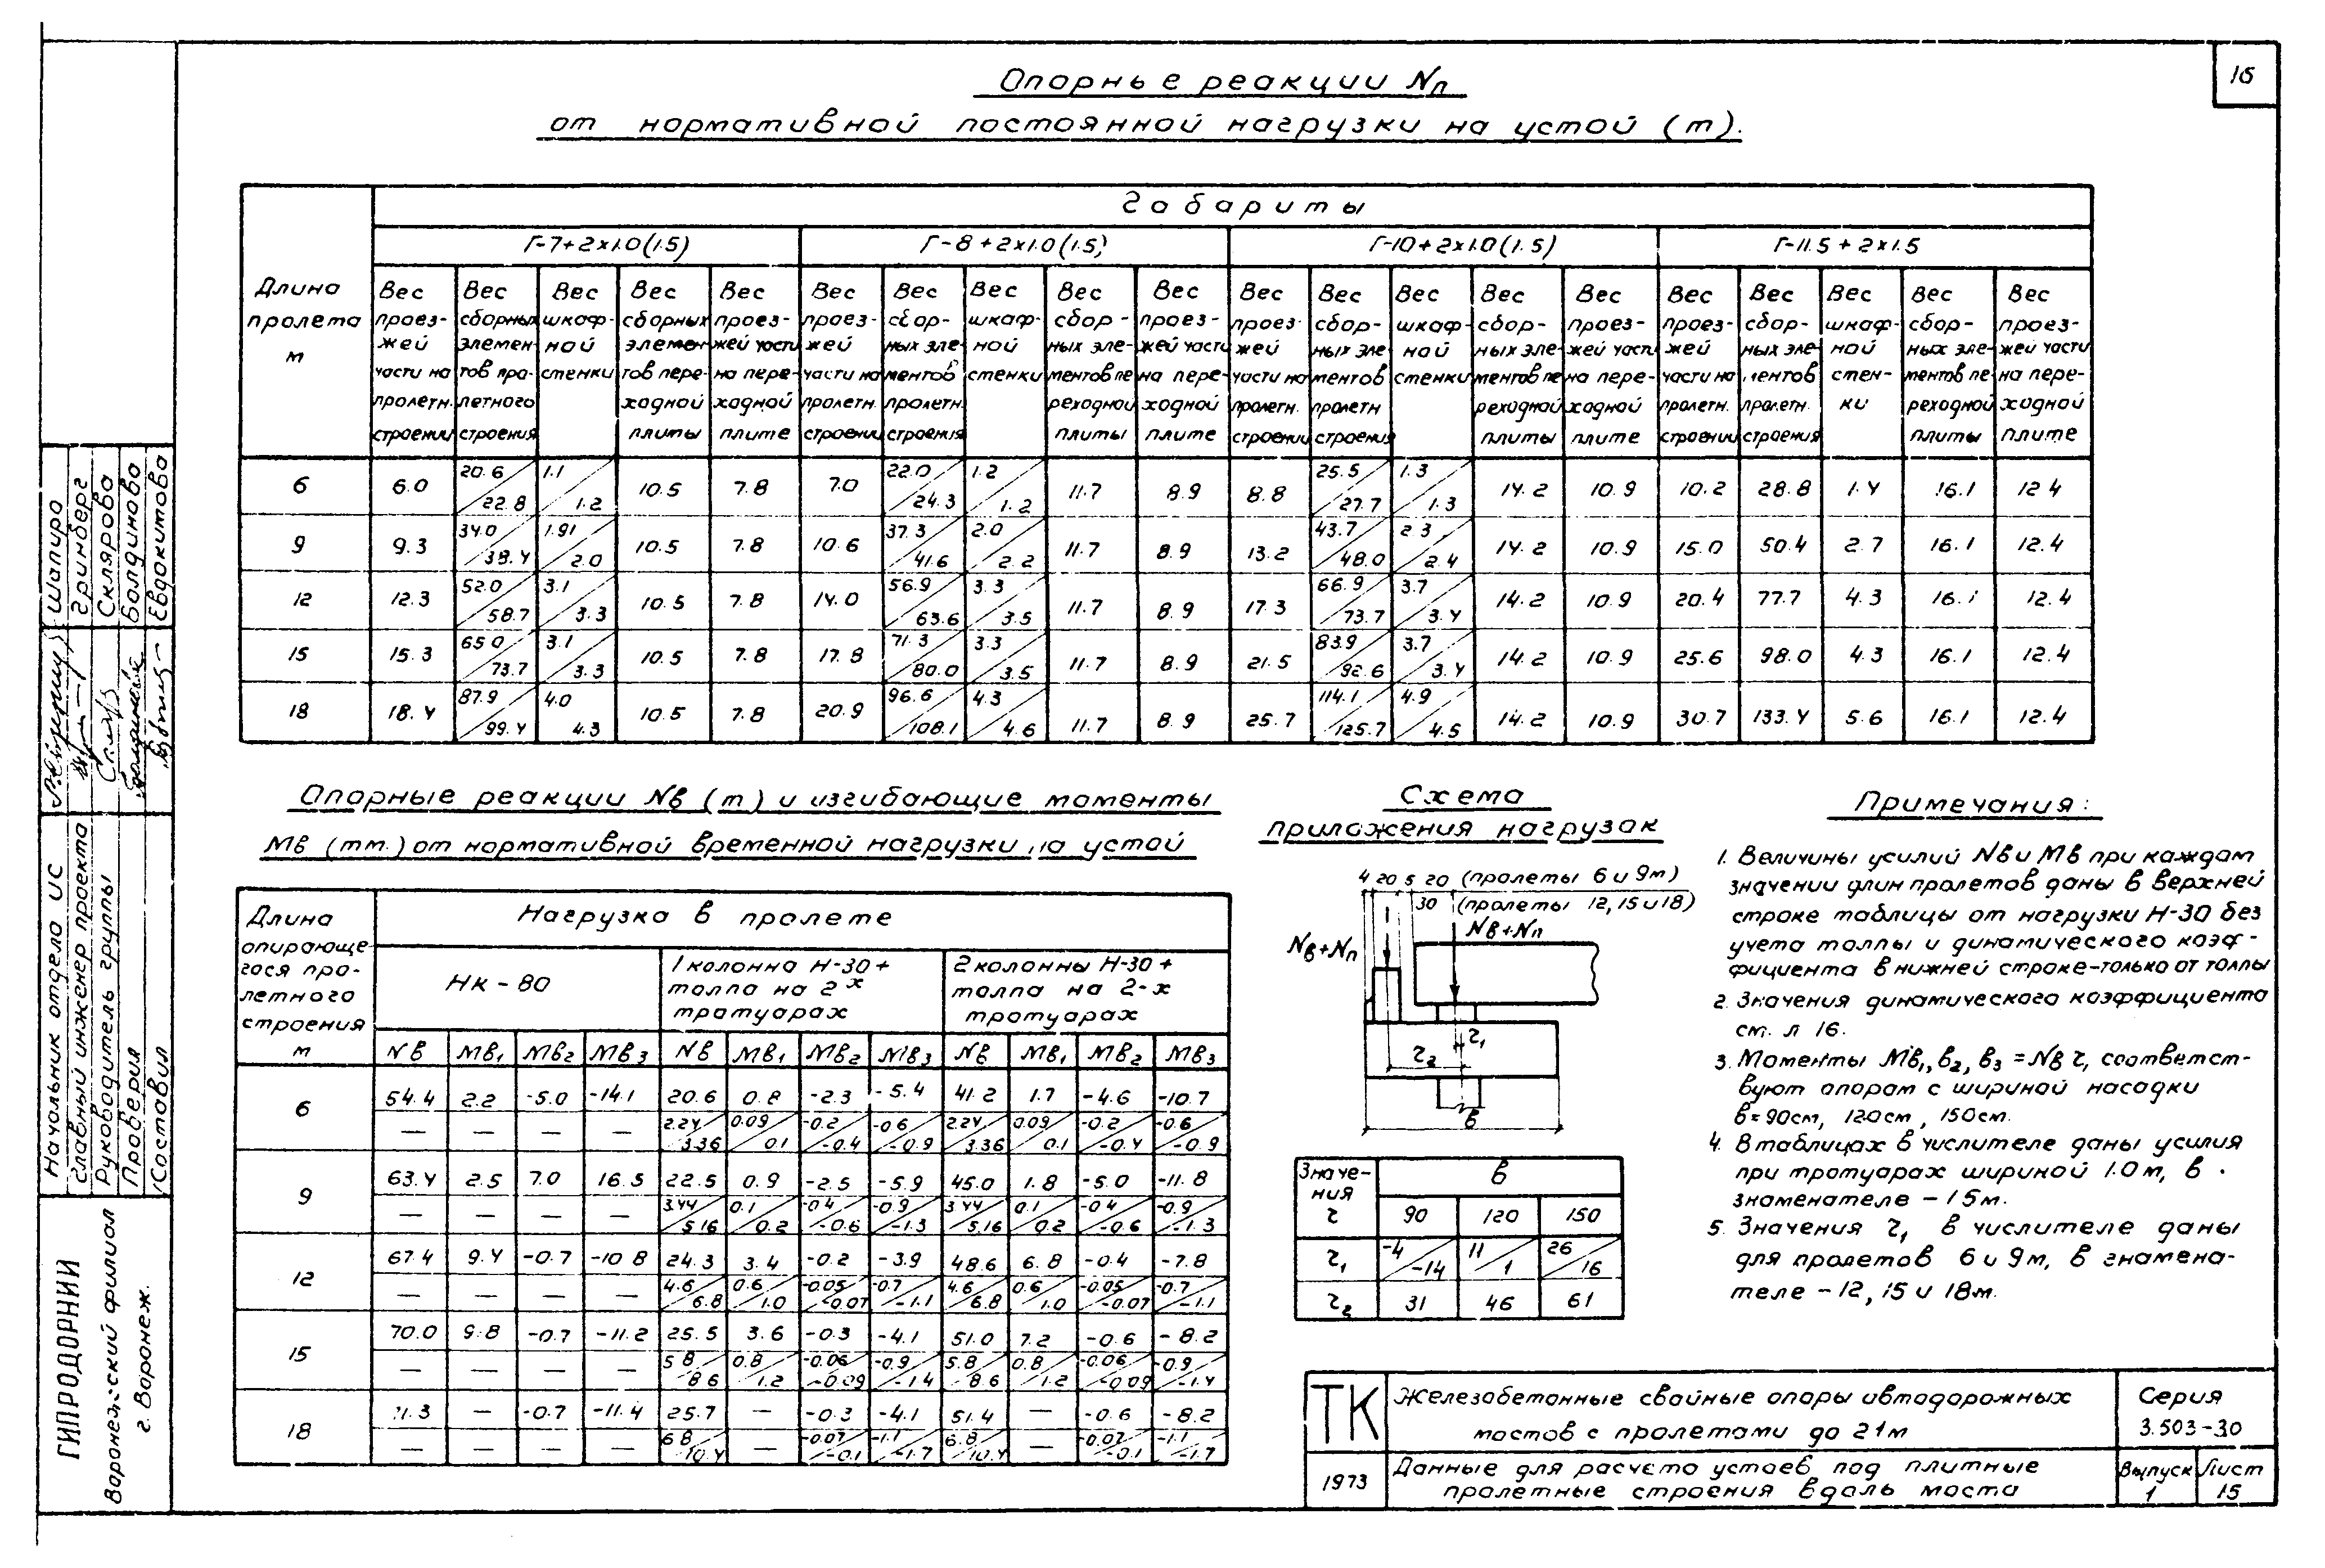 16
Опорные реакции Nп
от нормативной постоянной нагрузки на устой (т).
Длина пролета м
Габариты
Г-7+2×1.0(1.5)
Г-8+2×1.0(1.5)
Г-10+2×1.0(1.5)
Г-11.5+2×1.5
Вес проезжей части на пролетн. строении
Вес сборных элементов пролетного строения
Вес шкафной стенки
Вес сборных элементов переходной плиты
Вес проезжей части на переходной плите
Вес проезжей части на пролетн. строении
Вес сборных элементов пролетн. строения
Вес шкафной стенки
Вес сборных элементов переходной плиты
Вес проезжей части на переходной плите
Вес проезжей части на пролетн. строении
Вес сборных элементов пролетн строения
Вес шкафной стенки
Вес сборных элементов переходной плиты
Вес проезжей части на переходной плите
Вес проезжей части на пролетн. строении
Вес сборных элементов пролетн. строения
Вес шкафной стенки
Вес сборных элементов переходной плиты
Вес проезжей части на переходной плите
6 6.0 20.6/22.8 1.1/1.2 10.5 7.8 7.0 22.0/24.3 1.2/1.2 11.7 8.9 8.8 25.5/27.7 1.3/1.3 14.2 10.9 10.2 28.8 1.4 16.1 12.4
9 9.3 34.0/38.4 1.91/2.0 10.5 7.8 10.6 37.3/41.6 2.0/2.2 11.7 8.9 13.2 43.7/48.0 2.3/2.4 14.2 10.9 15.0 50.4 2.7 16.1 12.4
12 12.3 52.0/58.7 3.1/3.3 10.5 7.8 14.0 56.9/63.6 3.3/3.5 11.7 8.9 17.3 66.9/73.7 3.7/3.4 14.2 10.9 20.4 77.7 4.3 16.1 12.4
15 15.3 65.0/73.7 3.1/3.3 10.5 7.8 17.8 71.3/80.0 3.3/3.5 11.7 8.9 21.5 83.9/92.6 3.7/3.4 14.2 10.9 25.6 98.0 4.3 16.1 12.4
18 18.4 87.9/99.4 4.0/4.3 10.5 7.8 20.9 96.6/108.1 4.3/4.6 11.7 8.9 25.7 114.1/125.7 4.9/4.5 14.2 10.9 30.7 133.4 5.6 16.1 12.4
Опорные реакции Nв (т) и изгибающие моменты
Мв (тм.) от нормативной временной нагрузки на устой
Длина опирающегося пролетного строения м
Нагрузка в пролете
Нк-80
1 колонна Н-30+ толпа на 2х тротуарах
2 колонны Н-30+ толпа на 2-х тротуарах
Nв Мв1 Мв2 Мв3 Nв Мв1 Мв2 Мв3 Nв Мв1 Мв2 Мв3
6 54.4 2.2 -5.0 -14.1 20.6 0.8 -2.3 -5.4 41.2 1.7 -4.6 -10.7
— — — — 2.24/3.36 0.09/0.1 -0.2/-0.4 -0.6/-0.9 2.24/3.36 0.09/0.1 -0.2/-0.4 -0.6/-0.9
9 63.4 2.5 7.0 16.5 22.5 0.9 -2.5 -5.9 45.0 1.8 -5.0 -11.8
— — — — 3.44/5.16 0.1/0.2 -0.4/-0.6 -0.9/-1.3 3.44/5.16 0.1/0.2 -0.4/-0.6 -0.9/-1.3
12 67.4 9.4 -0.7 -10.8 24.3 3.4 -0.2 -3.9 48.6 6.8 -0.4 -7.8
— — — — 4.6/6.8 0.6/1.0 -0.05/-0.07 -0.7/-1.1 4.6/6.8 0.6/1.0 -0.05/-0.07 -0.7/-1.1
15 70.0 9.8 -0.7 -11.2 25.5 3.6 -0.3 -4.1 51.0 7.2 -0.6 -8.2
— — — — 5.8/8.6 0.8/1.2 -0.06/-0.09 -0.9/-1.4 5.8/8.6 0.8/1.2 -0.06/-0.09 -0.9/-1.4
18 71.3 — -0.7 -11.4 25.7 — -0.3 -4.1 51.4 — -0.6 -8.2
— — — — 6.8/10.4 — -0.07/-0.1 -1.1/-1.7 6.8/10.4 — -0.07/-0.1 -1.1/-1.7
Схема
приложения нагрузок
4 20 5 20 (пролеты 6 и 9м)
30 (пролеты 12, 15 и 18)
Nв+Nп
Nв+Nп
τ1
τ2
в
Значения τ
в
90 120 150
τ1 -4/-14 11/1 26/16
τ2 31 46 61
Примечания:
1. Величины усилий Nв и Мв при каждом
значении длин пролетов даны в верхней
строке таблицы от нагрузки Н-30 без
учета толпы и динамического коэф-
фициента в нижней строке-только от толпы
2. Значения динамического коэффициента
см. л 16.
3. Моменты Мв1, в2, в3 = Nв τ, соответст-
вуют опорам с шириной насадки
в=90см, 120см, 150см.
4. В таблицах в числителе даны усилия
при тротуарах шириной 1.0м, в
знаменателе - 1.5м.
5. Значения τ1 в числителе даны
для пролетов 6 и 9м, в знамена-
теле - 12, 15 и 18м.
ТК
1973
Железобетонные свайные опоры автодорожных
мостов с пролетами до 21м
Серия
3.503-30
Данные для расчета устоев под плитные
пролетные строения вдоль моста
Выпуск
1
Лист
15
Начальник отдела ИС Шапиро
Главный инженер проекта Гринберг
Руководитель группы Склярова
Проверил Болдинова
Составил Евдокимова
ГИПРОДОРНИИ
Воронежский филиал
г. Воронеж.